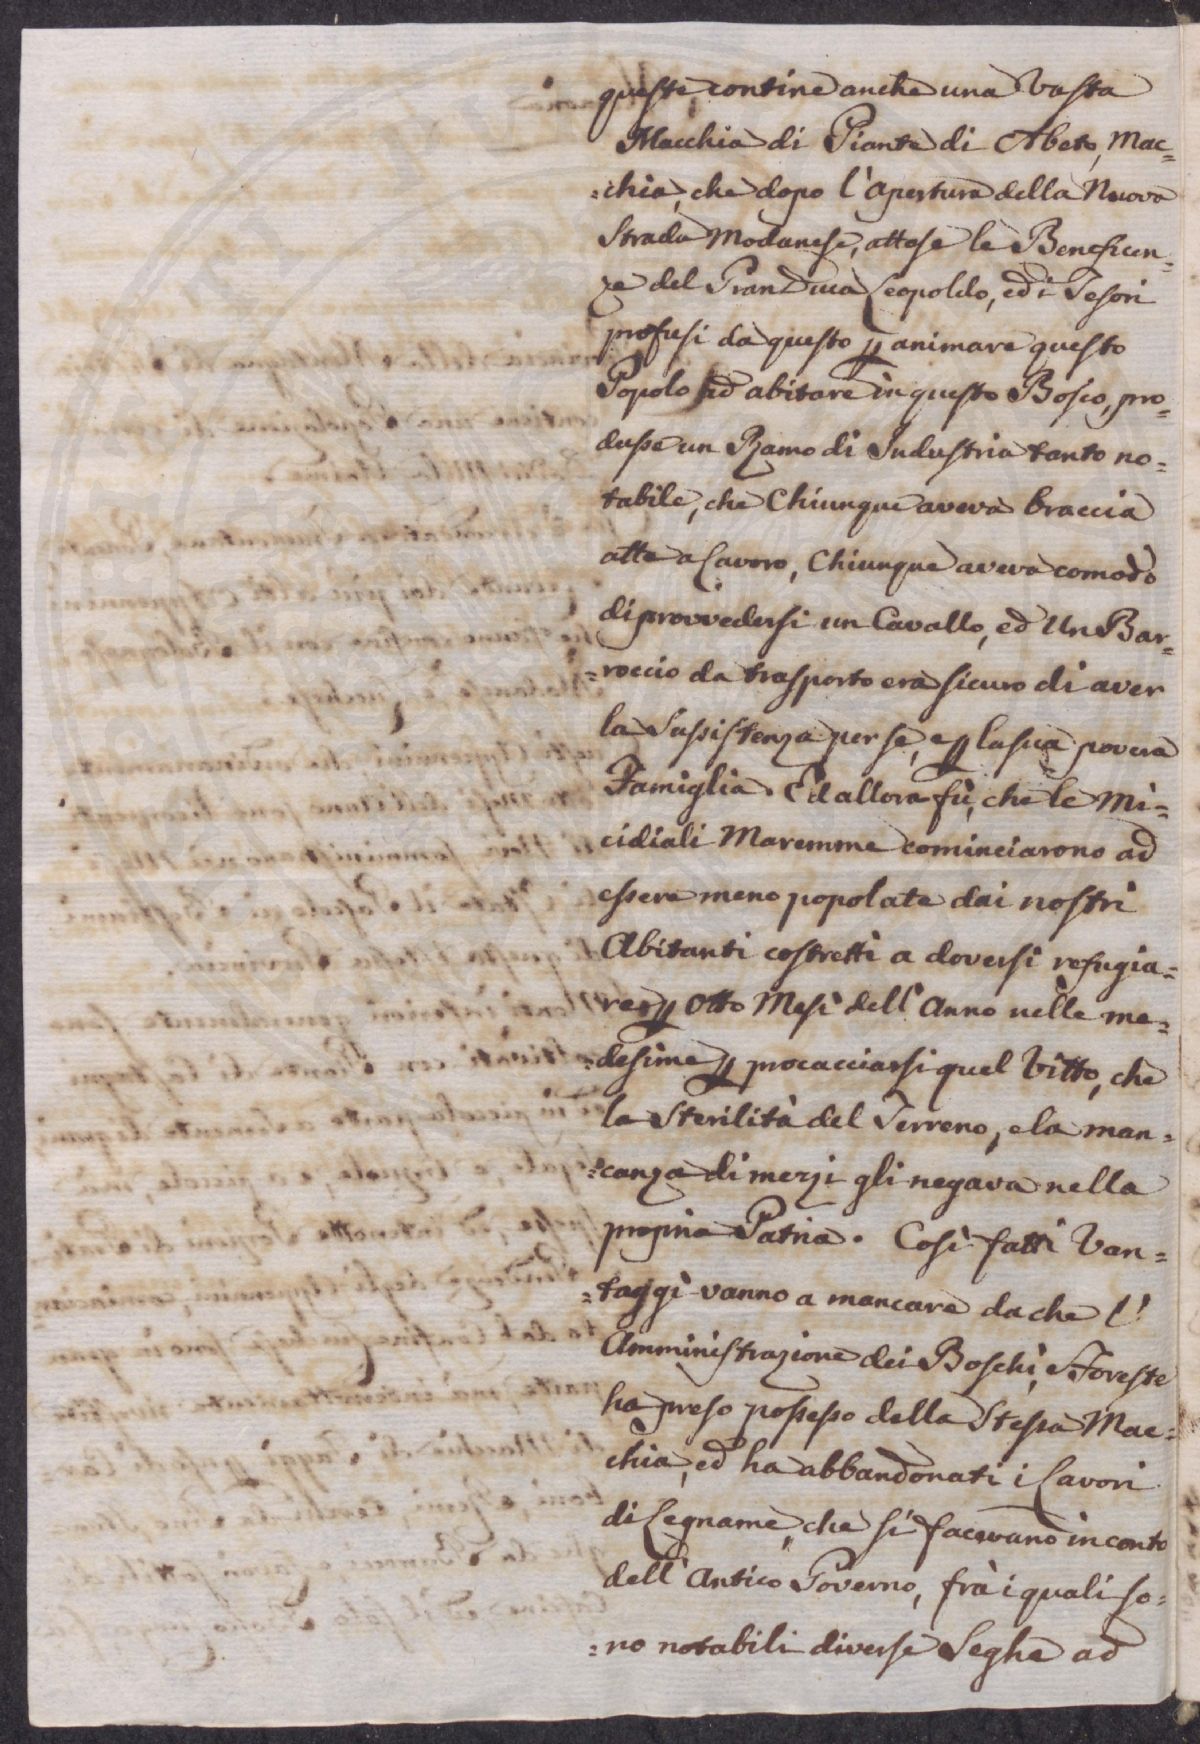 queste contine anche una Vasta
Macchia di Piante di Abeto, Mac=
=chia, che dopo l'apertura della Nuova
Strada Modanese, attese le Beneficen=
ze del GranDuca Leopoldo, ed i Tesori
profusi da questo p animare questo
Popolo ad abitare in questo Bosco, pro=
dusse un Ramo di Industria tanto no=
tabile, che Chiunque aveva braccia
atte a Lavoro, Chiunque aveva comodo
di provvedersi un Cavallo, ed Un Bar=
=roccio da trasporto era sicuro di aver
la Sussistenza per se, e p la sua povera
Famiglia. Ed allora fù, che le Mi=
cidiali Maremme cominciarono ad
essere meno popolate dai nostri
Abitanti costretti a doversi refugia=
re p Otto Mesi dell'Anno nelle me=
=desime p procacciarsi quel Vitto, che
la Sterilità del Terreno, e la man=
=canza di mezzi gli negava nella
propria Patria. Così fatti Van=
=taggi vanno a mancare da che l'
Amministrazione dei Boschi, e Foreste
ha preso possesso della Stessa Mac=
chia, ed ha abbandonati i Lavori
di Legname, che si facevano in conto
dell'Antico Governo, frà i quali so=
=no notabili diverse Seghe ad